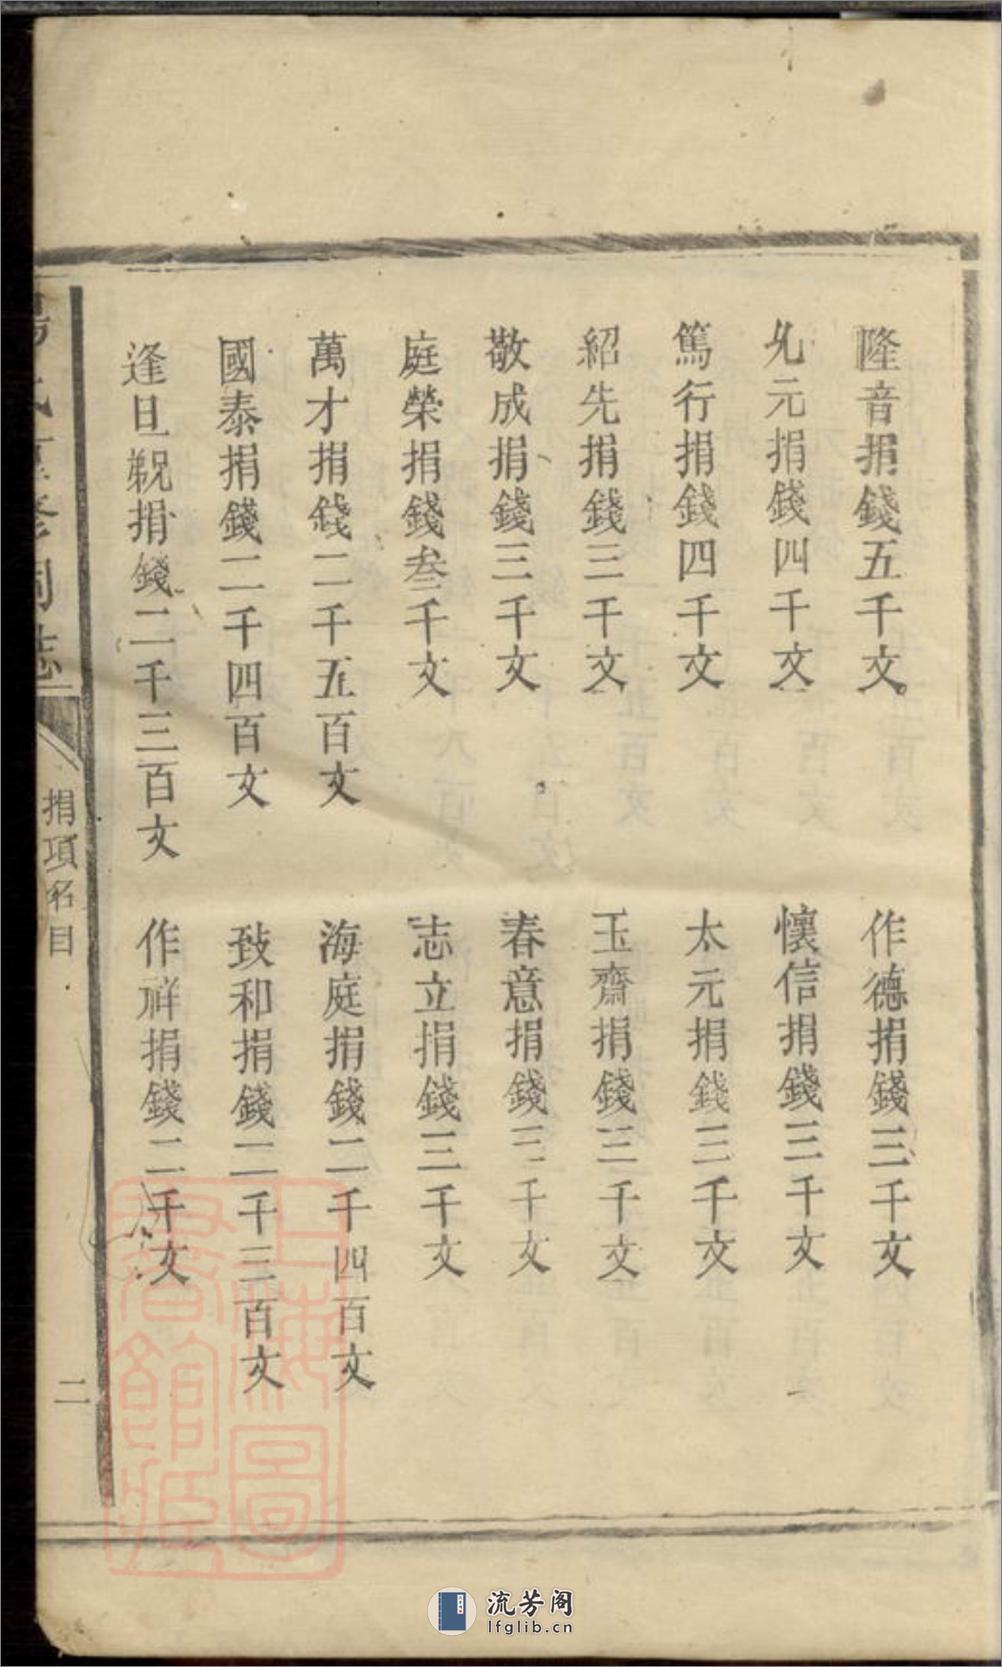 隆音捐錢五千文
作德捐錢三千文
元捐錢四千文
懷信捐錢三千文
篤行捐錢四千文
太元捐錢三千文
紹先捐錢三千文
玉齋捐錢三千文
敬成捐錢三千文
春意捐錢三千文
庭榮捐錢叁千文
志立捐錢三千文
萬才捐錢二千五百文
海庭捐錢二千四百文
國泰捐錢二千四百文
致和捐錢二千三百文
逢旦捐錢二千三百文
作祥捐錢二千文
捐項名目
二
上海圖書館藏
流芳阁
lfglib.cn